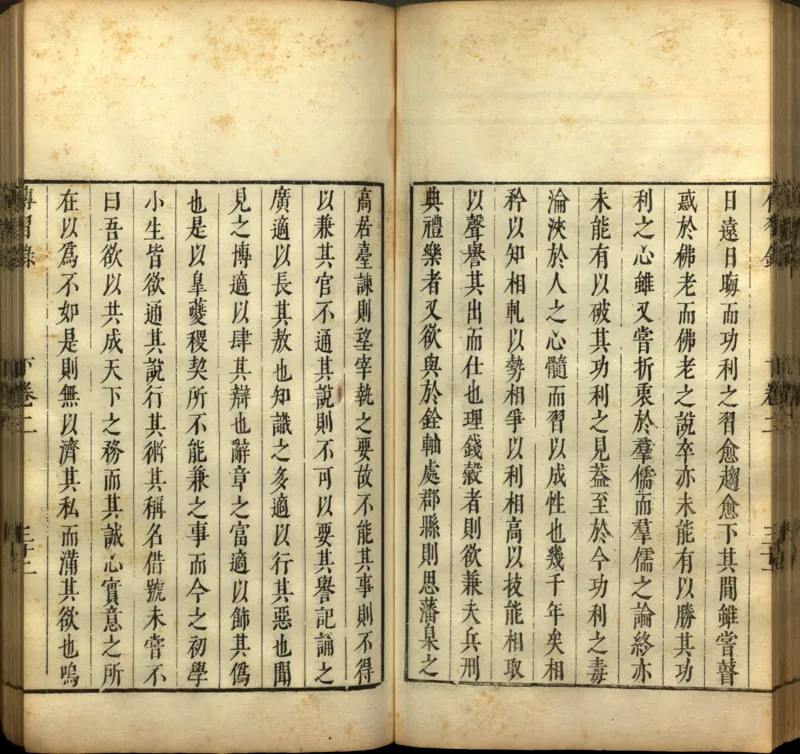 日遠日晦而功利之習愈趨愈下其間雖嘗瞽
惑於佛老而佛老之說卒亦未能有以勝其功
利之心雖又嘗折衷於羣儒而羣儒之論終亦
未能有以破其功利之見葢至於今功利之毒
淪浹於人之心髓而習以成性也幾千年矣相
矜以知相軋以勢相爭以利相高以技能相取
以聲譽其出而仕也理錢穀者則欲兼夫兵刑
典禮樂者又欲與於銓軸處郡縣則思藩臬之
高居臺諫則望宰執之要故不能其事則不得
以兼其官不通其說則不可以要其譽記誦之
廣適以長其敖也知識之多適以行其惡也聞
見之博適以肆其辯也辭章之富適以飾其偽
也是以臯夔稷契所不能兼之事而今之初學
小生皆欲通其說行其術其稱名借號未嘗不
曰吾欲以共成天下之務而其誠心實意之所
在以爲不如是則無以濟其私而滿其欲也嗚
傳習錄 下卷二 三十二